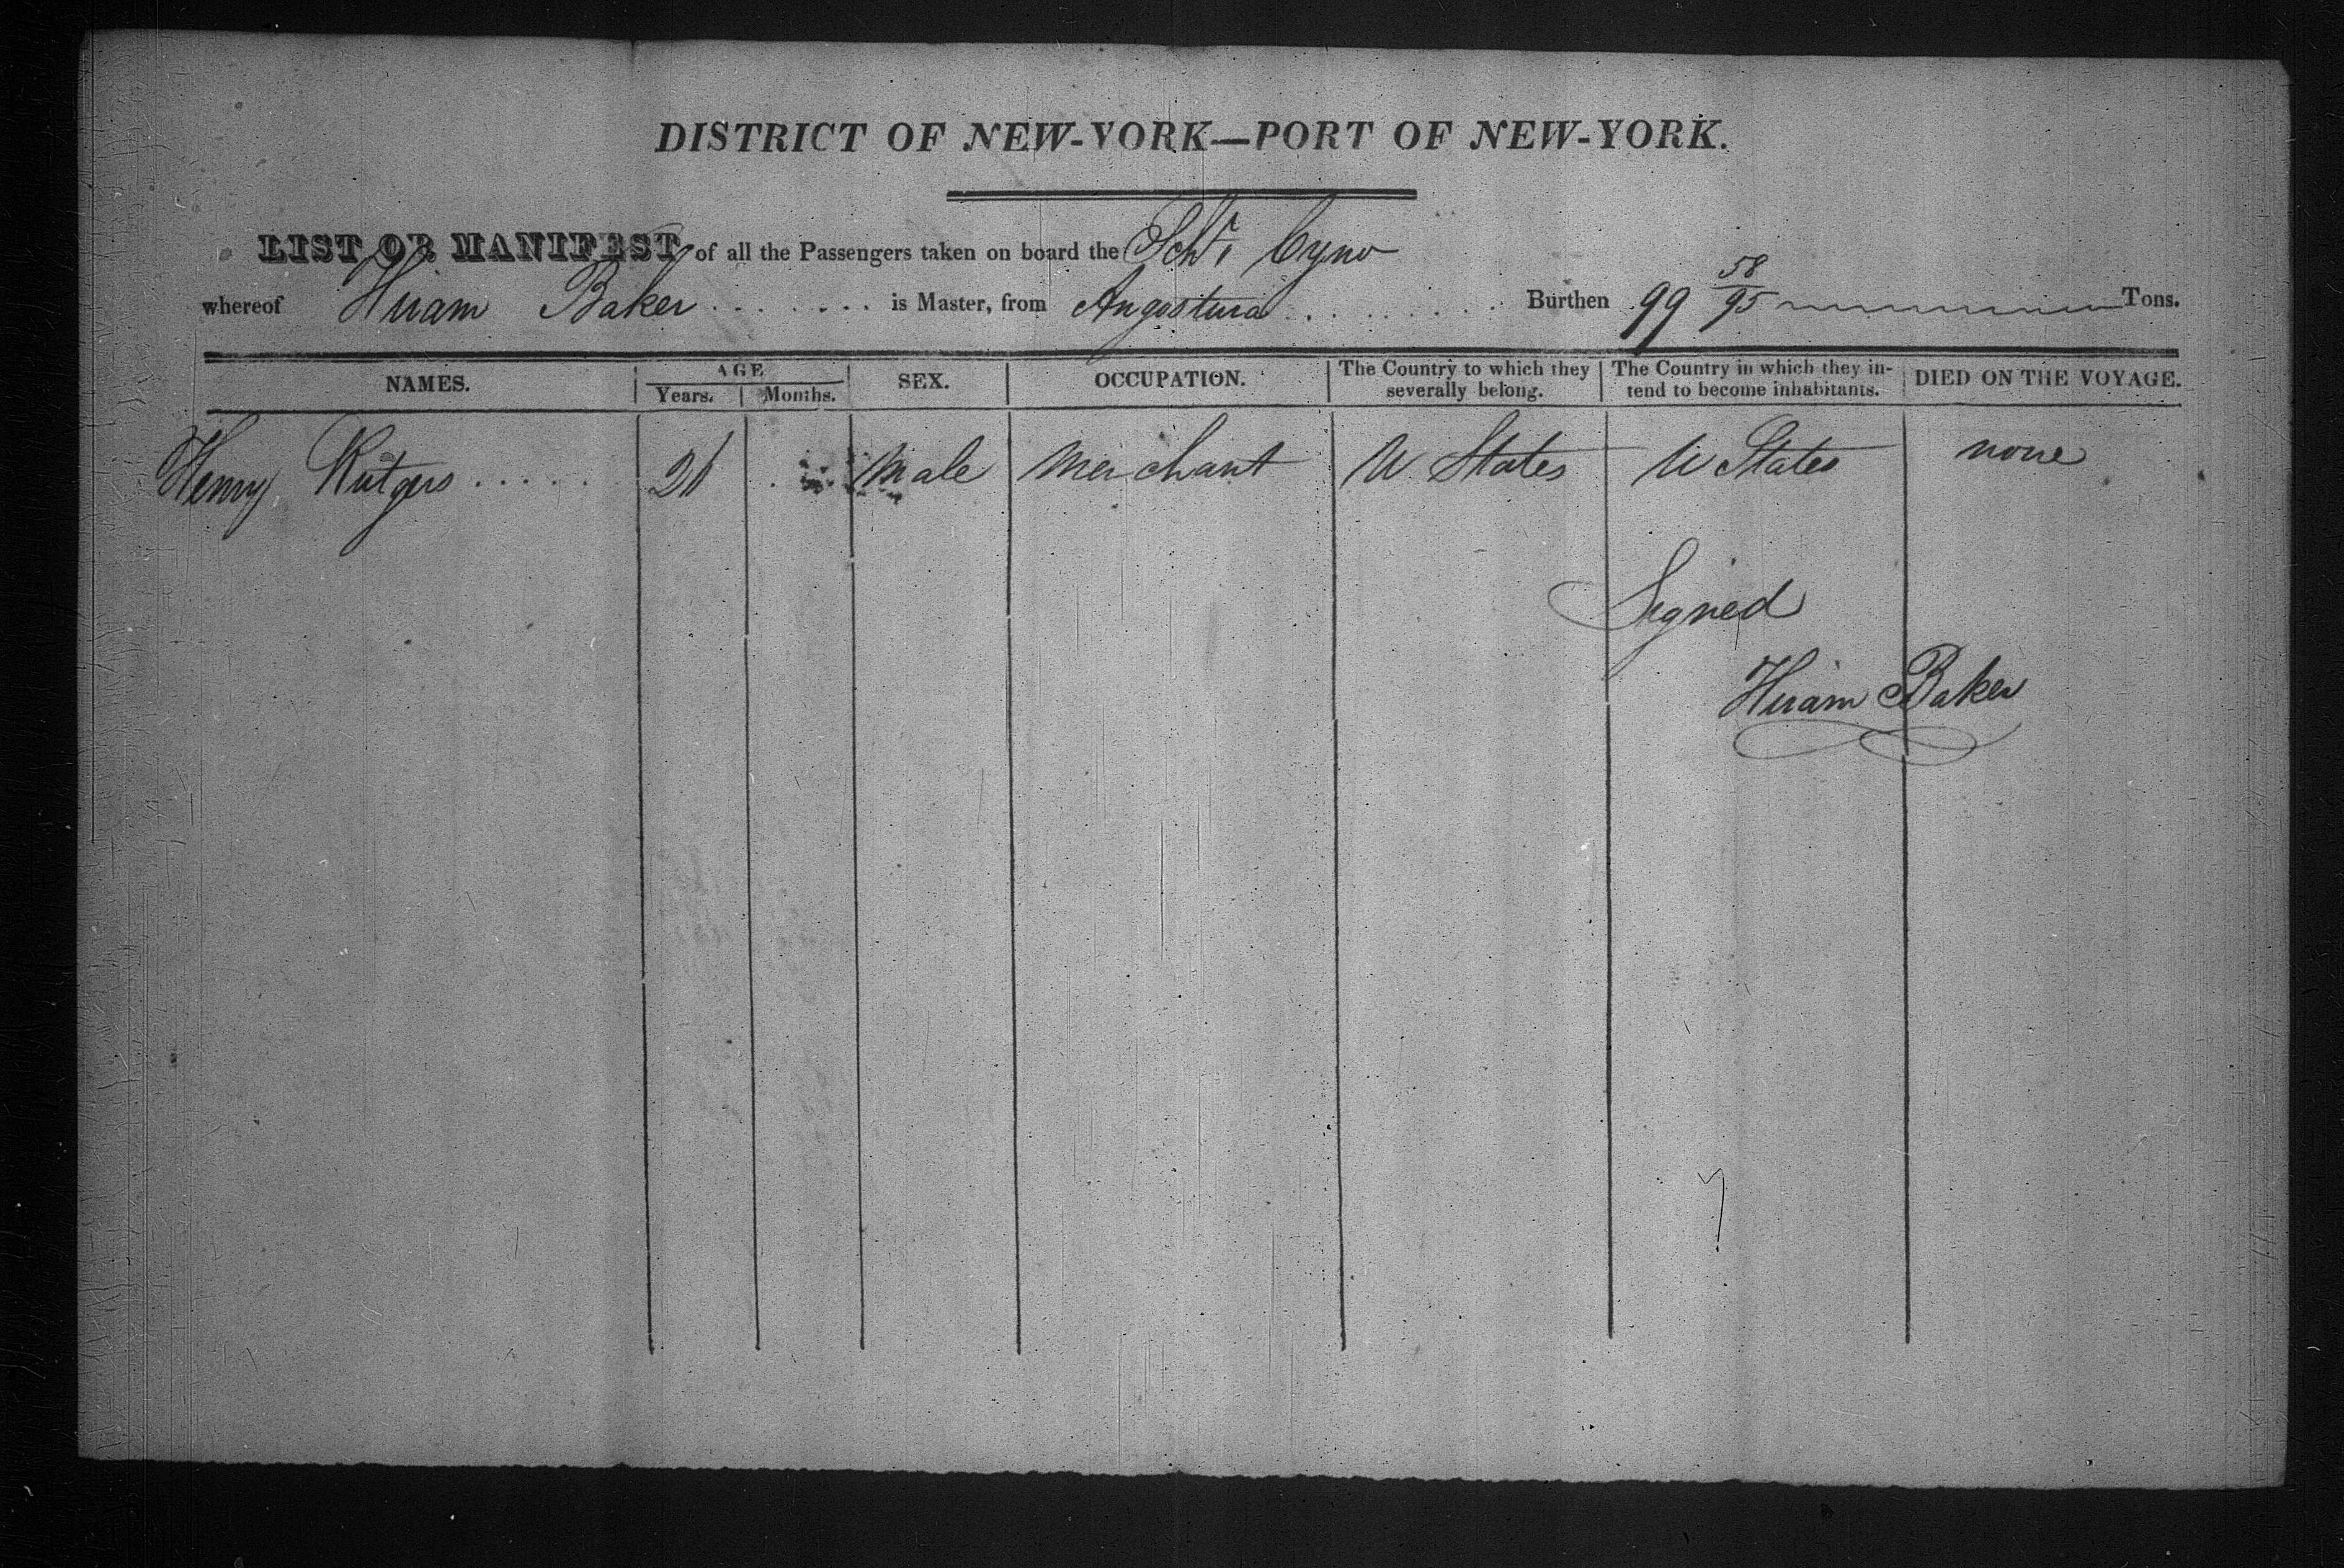 DISTRICT OF NEW-YORK—PORT OF NEW-YORK.
LIST OR MANIFEST of all the Passengers taken on board the Schr. Cyno
whereof Hiram Baker ........ is Master, from Angostura ......... Burthen 99 58/95 Tons.
NAMES. AGE Years. Months. SEX. OCCUPATION. The Country to which they severally belong. The Country in which they intend to become inhabitants. DIED ON THE VOYAGE.
Henry Rutgers ...... 26 Male Merchant U States U States none
Signed
Hiram Baker